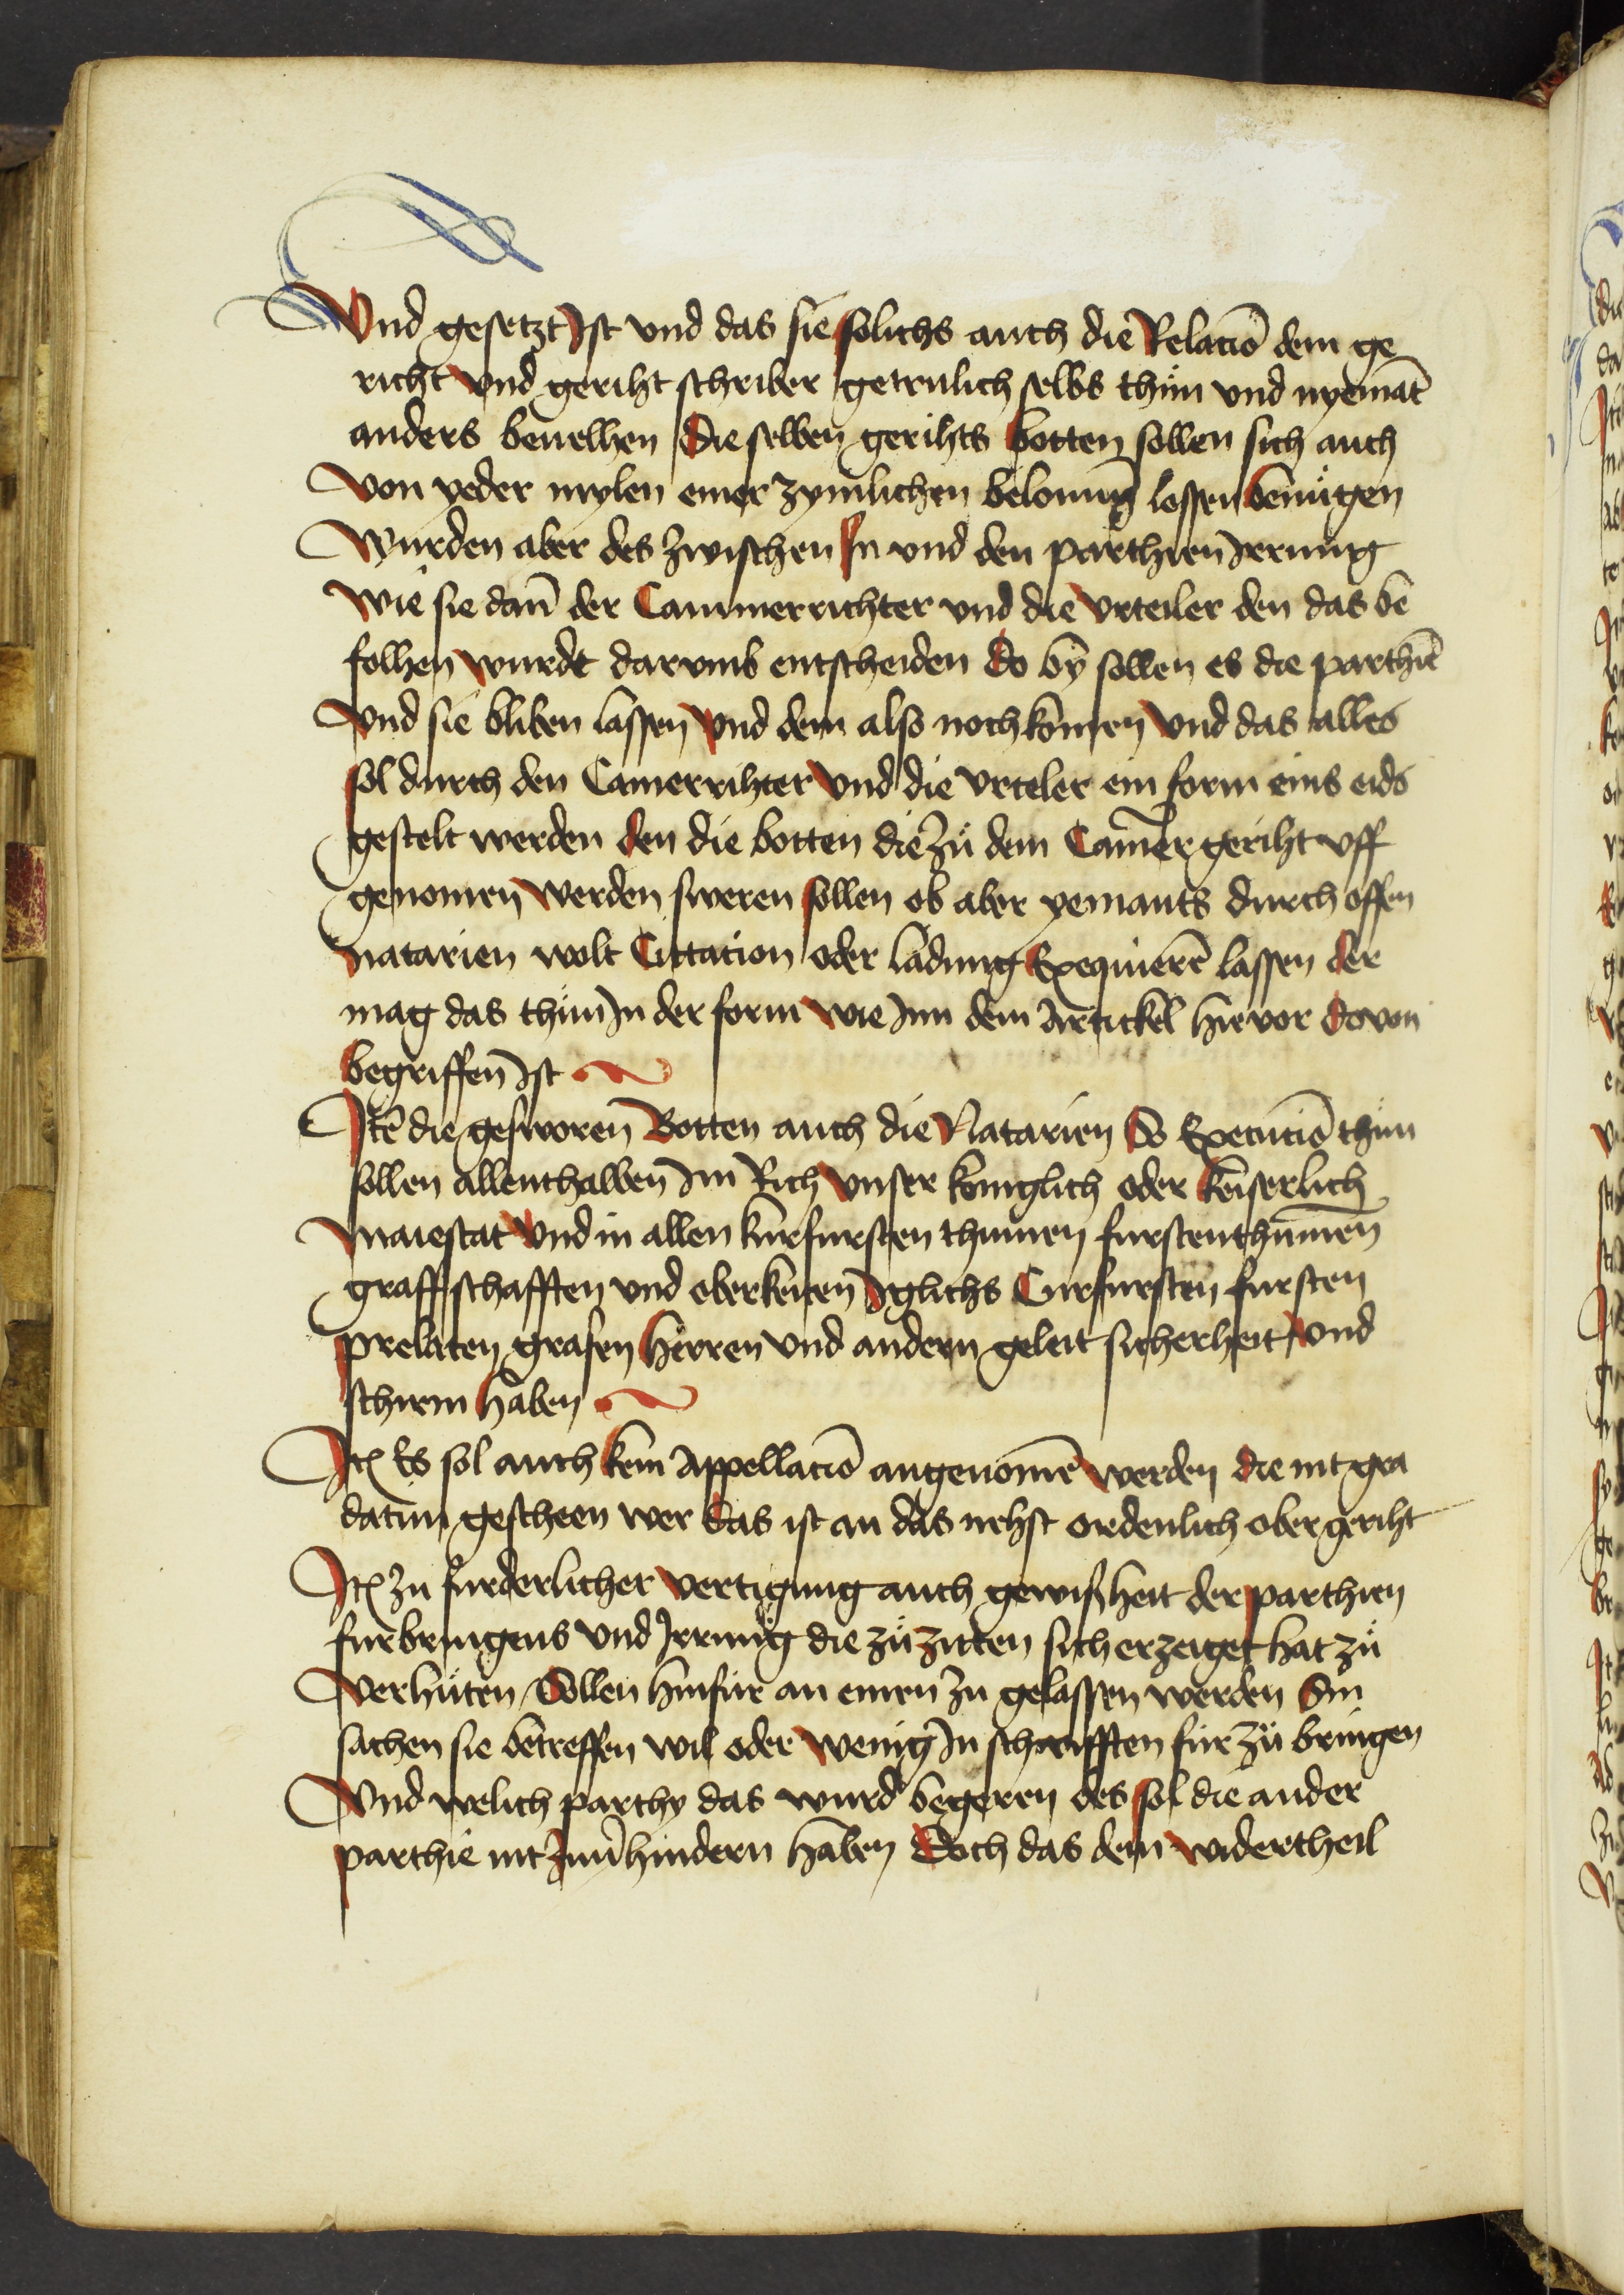 Vnd gesetzt Ist vnd das sie solichs auch die Relaciō dem ge
richt vnd geriht schriber getrulich selbs thün vnd nyemāt
anders beuelhen Die selben gerihts botten sollen sich auch
von yeder mylen einer zymlichen belonūg lossen benügen
Wurden aber des zwischen In vnd den parthien Irrung
wie sie dan̄ der Cammerrichter vnd die vrteiler den das be
folhen wurdt darvmb entscheiden do by sollen es die parthiē
vnd sie bliben lassen vnd dem also noch komen vnd das alles
sol durch den Camerrihter vnd die vrteler ein form eins eids
gestelt werden den die botten die zü dem Camer geriht vff
genomen werden sweren sollen ob aber yemants durch offen
natarien wolt Cittacion oder ladung Exequierē lassen der
mag das thün In der form wie Inn dem Artickel hie vor dovon
begriffen Ist
Itē die gesworen Botten auch die Natarien So Execuciō thün
sollen allenthalben Im Rich vnser koniglich oder keiserlich
Maiestat vnd in allen kurfursten thumen furstenthumen
graffschafften vnd oberkeiten Iglichs Curfursten fursten
prelaten grafen Herren vnd andern geleit sicherheit vnd
schirm haben
Itē Es sol auch kein Appellaciō angenomē werden die nit gra
datim gescheen wer das ist an das nehst ordenlich ober geriht
Itē zu furderlicher vertigung auch gewißheit der parthien
furbringens vnd Irrung die zü zitten sich erzeiget hat zü
verhüten Sollen hinfür an einen zu gelassen werden Sin
sachen sie betreffen wil oder wenig In schrifften für zü bringen
Vnd welich parthy das wurd begeren des sol die ander
parthie nit zuuerhindern haben Doch das dem widertheil